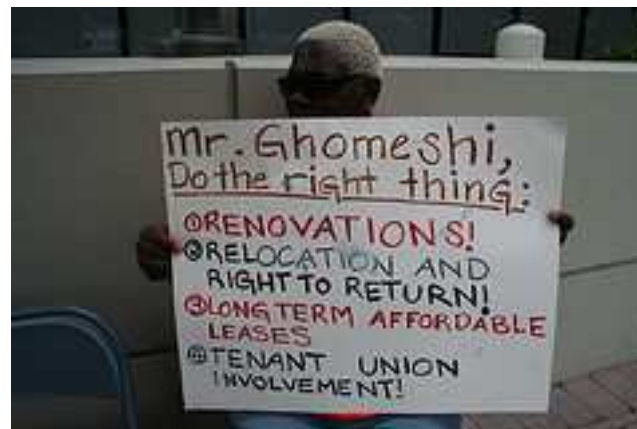 Mr. Ghomeshi,
Do the right thing:
① RENOVATIONS!
② RELOCATION AND
RIGHT TO RETURN!
③ LONG TERM AFFORDABLE
LEASES
④ TENANT UNION
INVOLVEMENT!